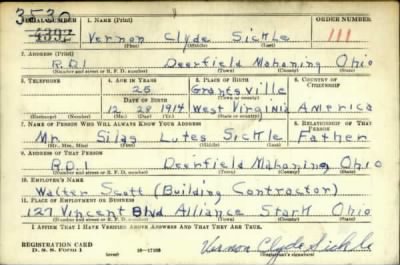 3530
SERIAL NUMBER 1. NAME (Print) ORDER NUMBER
4392 Vernon Clyde Sickle 111
(First) (Middle) (Last)
2. ADDRESS (Print)
RD1 Deerfield Mahoning Ohio
(Number and street or R. F. D. number) (Town) (County) (State)
3. TELEPHONE 4. AGE IN YEARS 5. PLACE OF BIRTH 6. COUNTRY OF CITIZENSHIP
25 Grantsville
DATE OF BIRTH (Town or county)
12 28 1914 West Virginia America
(Exchange) (No.) (Mo.) (Day) (Yr.) (State or country)
7. NAME OF PERSON WHO WILL ALWAYS KNOW YOUR ADDRESS 8. RELATIONSHIP OF THAT PERSON
Mr. Silas Lutes Sickle Father
(Mr., Mrs., Miss) (First) (Middle) (Last)
9. ADDRESS OF THAT PERSON
RD1 Deerfield Mahoning Ohio
(Number and street or R. F. D. number) (Town) (County) (State)
10. EMPLOYER'S NAME
Walter Scott (Building Contractor)
11. PLACE OF EMPLOYMENT OR BUSINESS
127 Vincent Blvd. Alliance Stark Ohio
(Number and street or R. F. D. number) (Town) (County) (State)
I AFFIRM THAT I HAVE VERIFIED ABOVE ANSWERS AND THAT THEY ARE TRUE.
REGISTRATION CARD
D. S. S. Form 1 (over) Vernon Clyde Sickle
(Registrant's signature)